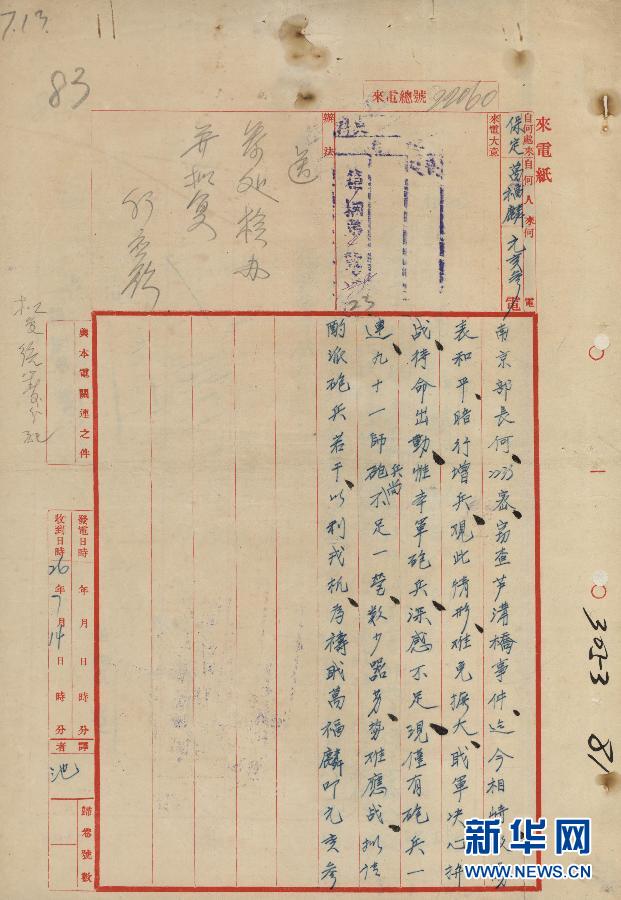 7.13
83
來電總號 22060
來電紙
自何處來 自何人來 何電
保定 萬福麟 元亥參 電
來電大意
辦法
送
并拟复
南京部長何密窃查芦溝橋事件迄今相持
表和平暗行增兵現此情形难免擴大职軍决心拼
战待命出動惟本軍砲兵深感不足現僅有砲兵一
連九十一師砲兵尚不足一營数少器劣勢难應战拟请
酌派砲兵若干以利戎机为禱职萬福麟叩元亥參
與本電關連之件
發電日時 年 月 日 時 分
收到日時 26年7月14日 時 分
譯者 池
歸卷號數
3053
81
新华网
WWW.NEWS.CN